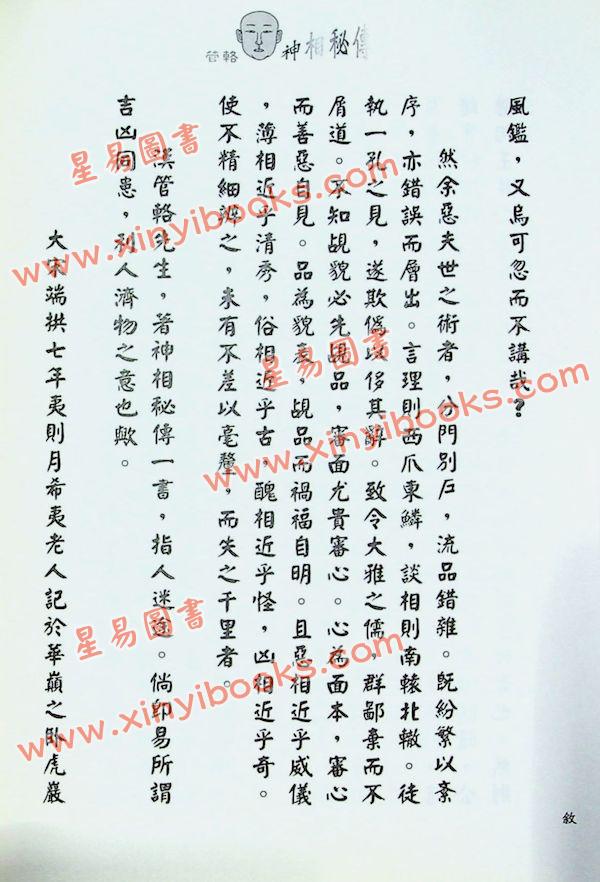 管輅 神相秘傳
風鑑，又烏可忽而不講哉？
然余惡夫世之術者，分門別戶，流品錯雜。既紛繁以紊
序，亦錯誤而層出。言理則西爪東鱗，談相則南轅北轍。徒
執一孔之見，遂欺偽以侈其辭。致令大雅之儒，群鄙棄而不
屑道。不知覘貌必先覘品，審面尤貴審心。心為面本，審心
而善惡自見。品為貌表，覘品而禍福自明。且惡相近乎威儀
，薄相近乎清秀，俗相近乎古，醜相近乎怪，凶相近乎奇。
使不精細辨之，未有不差以毫釐，而失之千里者。
漢管輅先生，著神相秘傳一書，指人迷途。倘即易所謂
吉凶同患，利人濟物之意也歟。
大宋端拱七年夷則月希夷老人記於華巔之臥虎巖
敘
星易圖書
www.xinyibooks.com
星易圖書
www.xinyibooks.com
星易圖書
www.xinyibooks.com